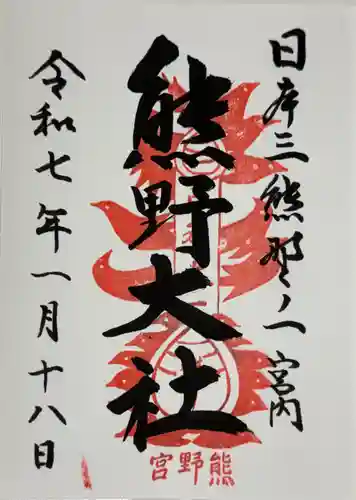 日本三熊野ノ一 宮内
熊野大社
令和七年一月十八日
熊野宮